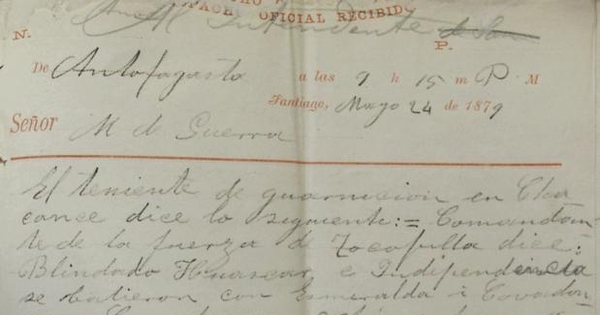 OFICIAL RECIBIDO
Al Intendente
N. P.
De Antofagasta a las 9 h 15 m P M
Santiago, Mayo 24 de 1879
Señor M de Guerra
El teniente de guarnicion en Cha
cance dice lo seguente: = Comandan
te de la fuerza de Tocopilla dice:
Blindado Huascar, e Independencia
se batieron con Esmeralda i Covadon